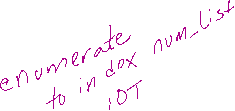 enumerate
to in dex num_list
IOT